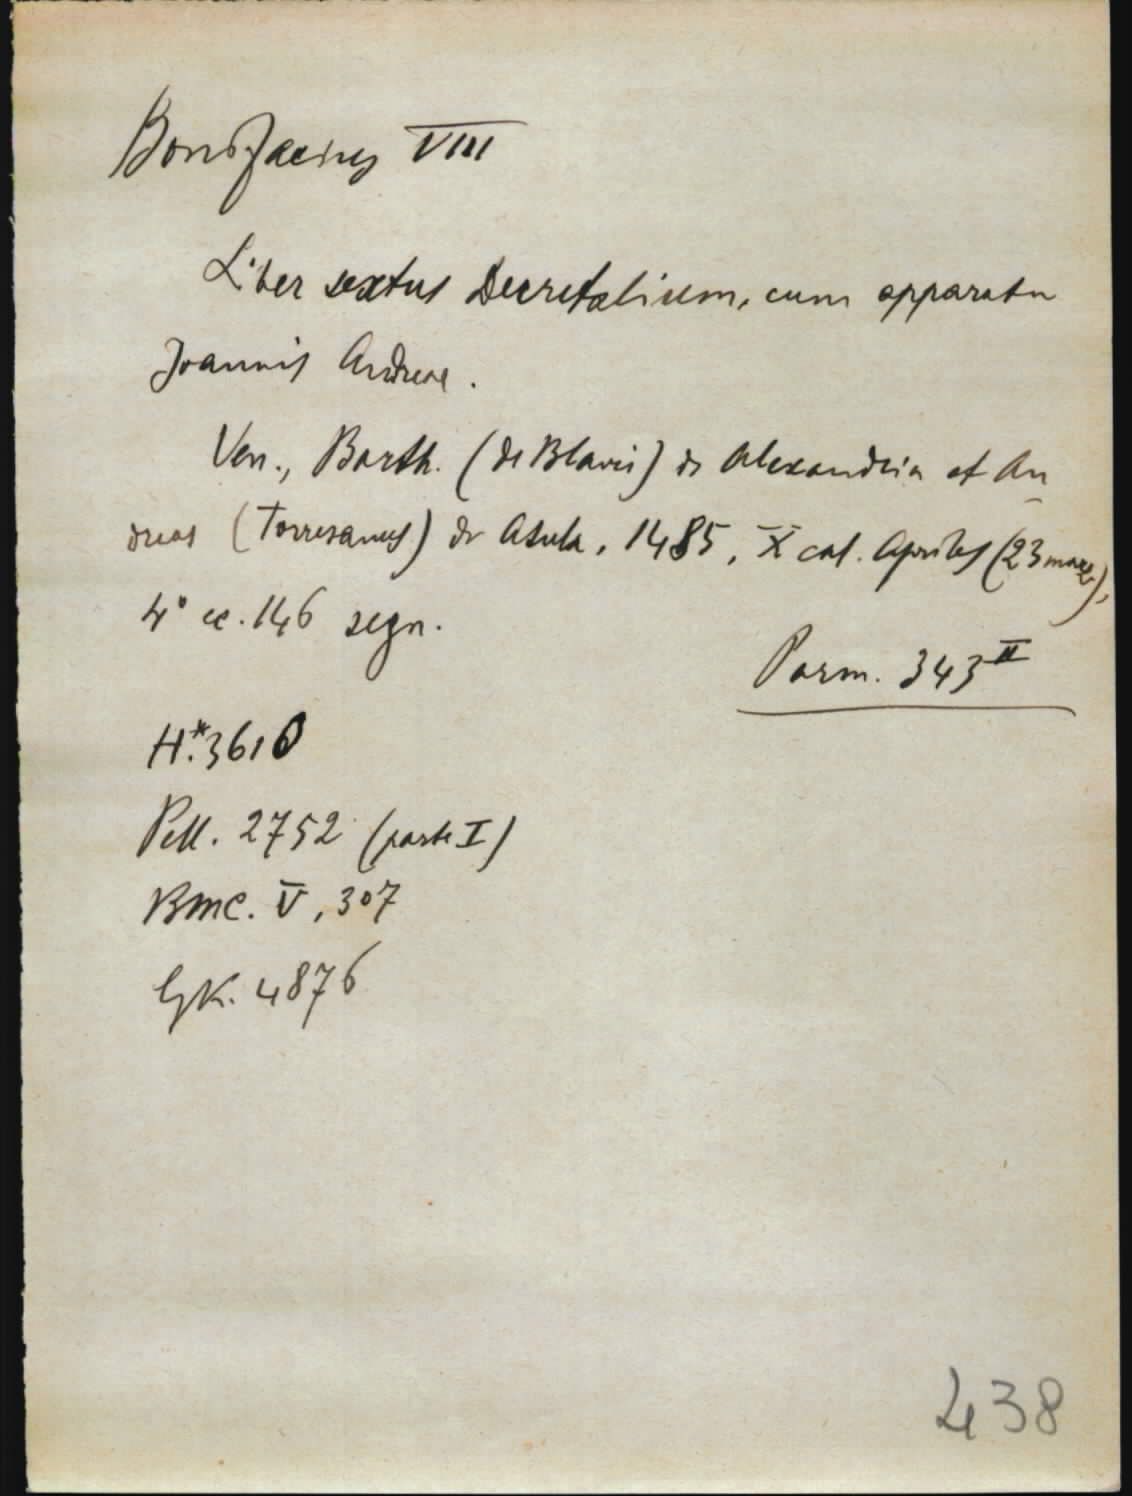 Bonifacius VIII
Liber sextus Decretalium, cum apparatu
Joannis Andreae.
Ven., Barth. (de Blavis) de Alexandria et An
dreas (Torresanus) de Asula, 1485, X cal. Apriles (23 marz.),
4° cc. 146 segn.
Parm. 343 II
H*. 3610
Pell. 2752 (parte I)
BMC. V, 307
GK. 4876
438